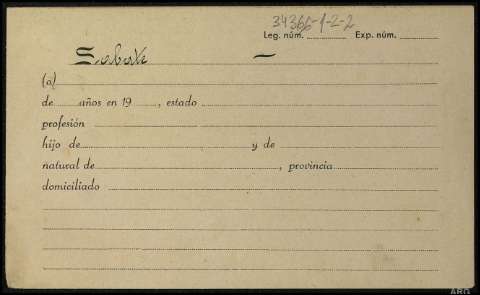 34366-1-2-2
Leg. núm. Exp. núm.
Sabate —
(a)
de años en 19 , estado
profesión
hijo de y de
natural de , provincia
domiciliado
ARG